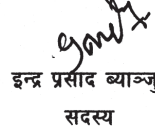 इन्द्र प्रसाद ब्याञ्जु
सदस्य